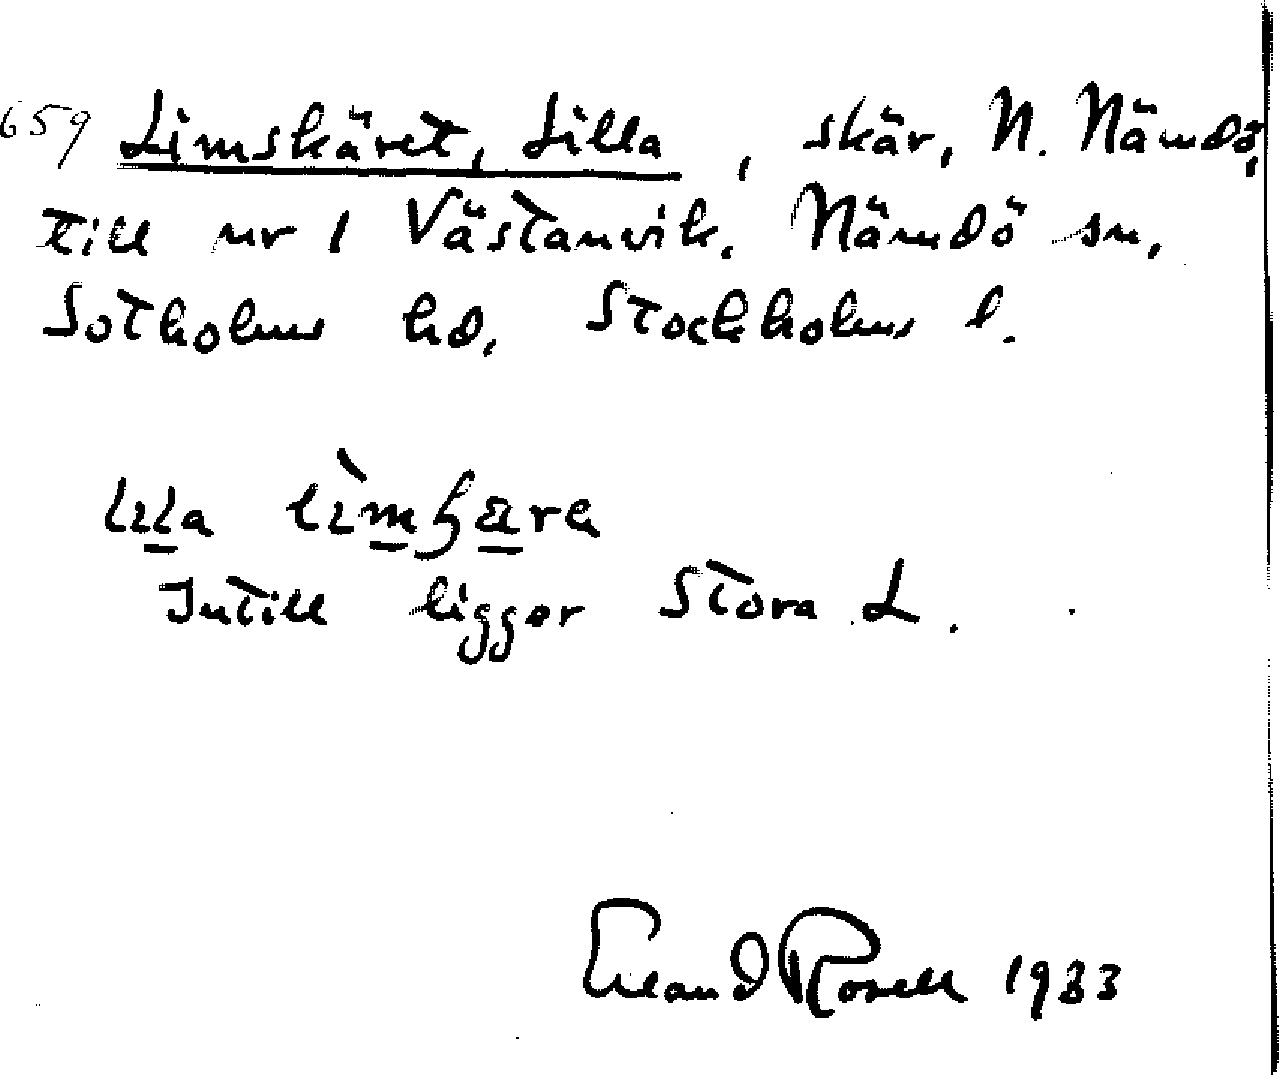 659 Limskäret, Lilla, skär, N. Nämdö,
till nr 1 Västanvik. Nämdö sn,
Sotholms hd, Stockholms l.
Intill ligger Stora L.
Erland Rosell 1983